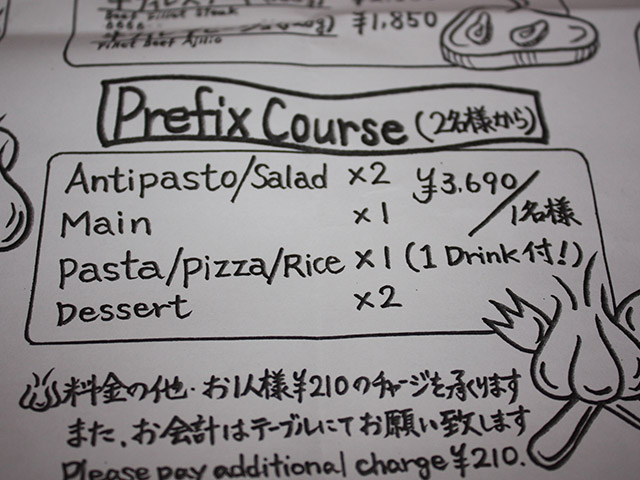 ¥1,850
Prefix Course (2名様から)
Antipasto/Salad ×2 ¥3,690/1名様
Main ×1
Pasta/Pizza/Rice ×1 (1 Drink付!)
Dessert ×2
料金の他・お1人様¥210のチャージを承ります
また、お会計はテーブルにてお願い致します
Please pay additional charge ¥210.